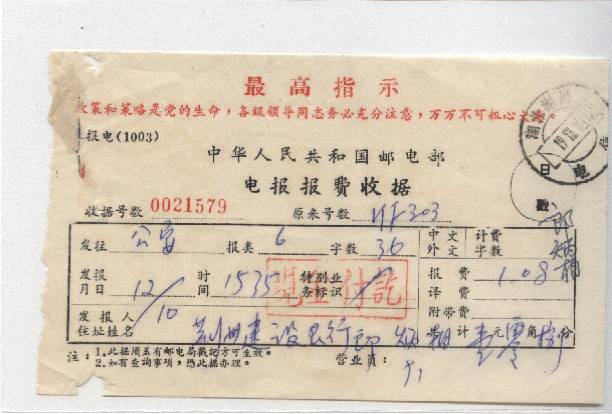 最高指示
政策和策略是党的生命，各级领导同志务必充分注意，万万不可粗心大意。
报电(1003)
中华人民共和国邮电部
电报报费收据
收据号数 0021579 原来号数 303
发往 公安 报类 6 字数 36 中文 外文 计费字数
发报月日 12/10 时间 1535 特别业务标识 报费 1.08
译费
附带费
发报人住址姓名 荆州建设银行 共计 壹元零角捌分
現金付訖
注：1.此据须盖有邮电局戳记方可生效。
2.如有查詢事項，憑此据办理。
营业员：